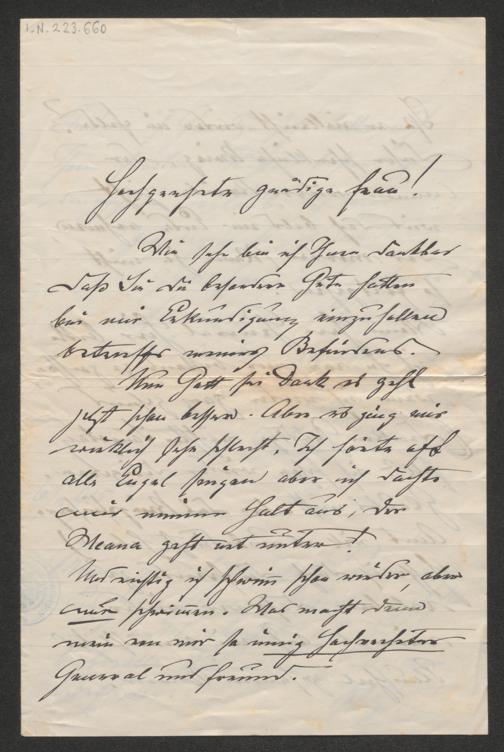 I.N. 223.660
Hochgeehrte gnädige Frau!
Wie sehr bin ich Ihnen dankbar
daß Sie die besondere Güte hatten
bei mir Erkundigung einzuholen
betreffs meines Befindens.
Nun Gott sei Dank es geht
jetzt schon besser. Aber es ging mir
wirklich sehr schlecht. Ich hörte oft
alle Engel singen aber ich dachte
mir immer halt aus, der
geht net unter!
Und richtig ich schwimm schon wieder, aber
nur schwimmen. Was macht denn
mein von mir so innig hochverehrter
General und Freund.